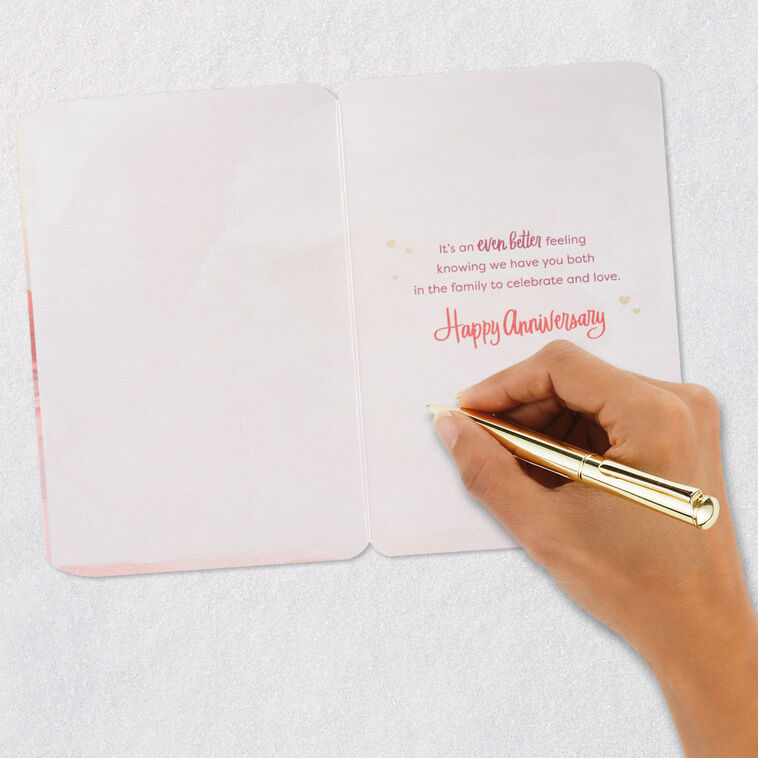 It's an even better feeling
knowing we have you both
in the family to celebrate and love.
Happy Anniversary